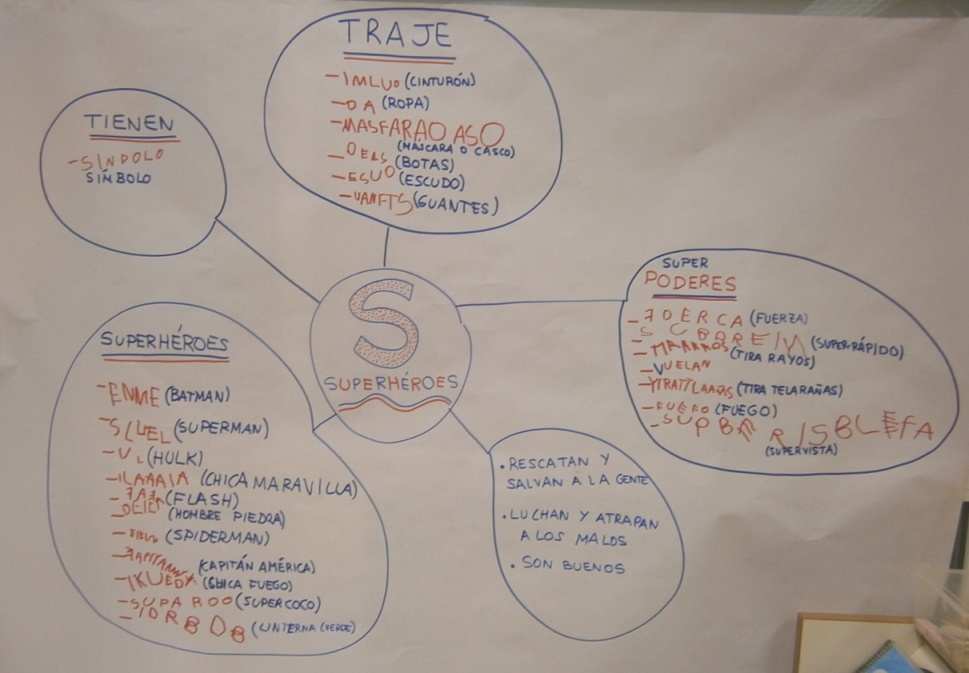 TRAJE
-IMLUO (CINTURÓN)
-OA (ROPA)
-MASFARAO ASO
(MÁSCARA O CASCO)
-OEAS (BOTAS)
-ESUO (ESCUDO)
-UANFTS (GUANTES)
TIENEN
-SINDOLO
SÍMBOLO
S
SUPERHÉROES
SUPER
PODERES
-FOERCA (FUERZA)
-SUBAREIN (SUPER-RÁPIDO)
(TIRA RAYOS)
-VUELAN
(TIRA TELARAÑAS)
-FUEFO (FUEGO)
-SUPBR RISBLEFA
(SUPERVISTA)
SUPERHÉROES
-ENME (BATMAN)
-SLUEL (SUPERMAN)
-UL (HULK)
-ILAAAIA (CHICA MARAVILLA)
(FLASH)
(HOMBRE PIEDRA)
(SPIDERMAN)
(CAPITÁN AMÉRICA)
-IKUEDA (CHICA FUEGO)
-SUPAROO (SUPERCOCO)
-IDRBDB (LINTERNA VERDE)
• RESCATAN Y
SALVAN A LA GENTE
• LUCHAN Y ATRAPAN
A LOS MALOS
• SON BUENOS